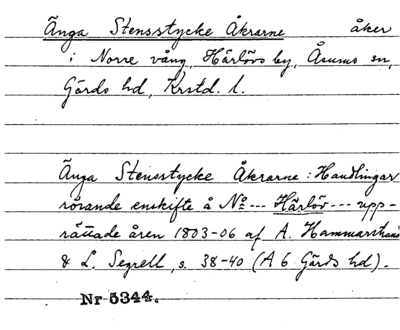 Änga Stensstycke Åkrarne åker
i Norre vång, Härlövs by, Åsums sn,
Gärds hd, Krstd. l.
Änga Stensstycke Åkrarne: Handlingar
rörande enskifte å No --- Härlöv --- upp-
rättade åren 1803-06 af A. Hammarstrand
& L. Segrell, s. 38-40 (A 6 Gärds hd).
Nr 5344.